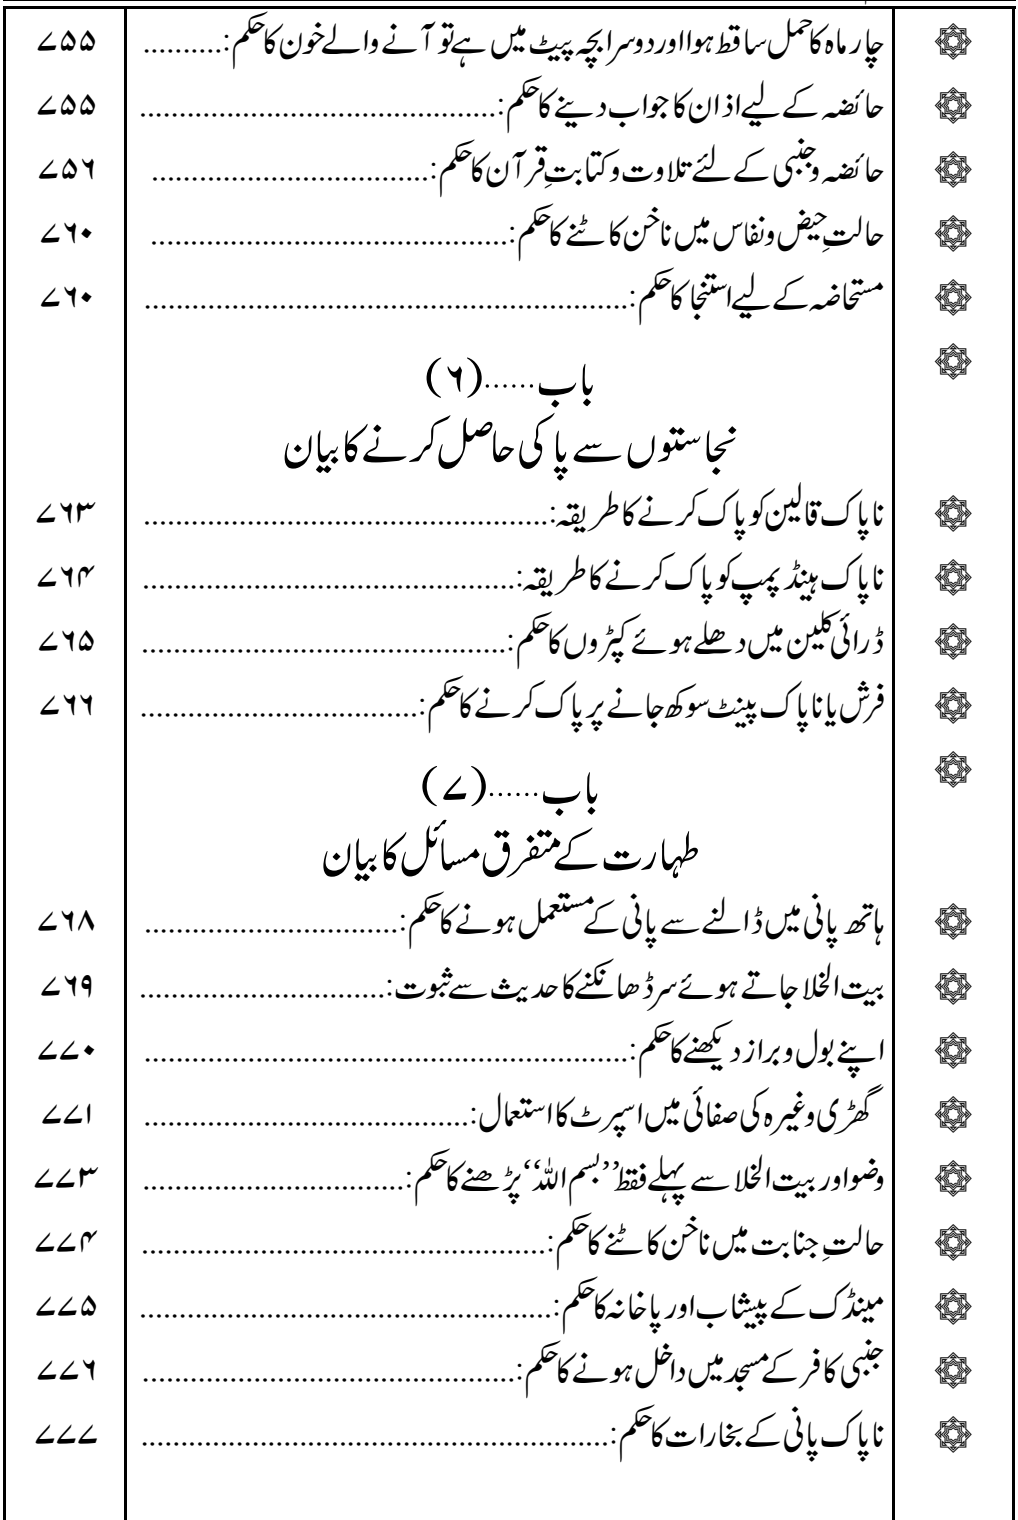 چار ماہ کا حمل ساقط ہوا اور دوسرا بچہ پیٹ میں ہے تو آنے والے خون کا حکم:.......... ۷۵۵
حائضہ کے لیے اذان کا جواب دینے کا حکم:............................................. ۷۵۵
حائضہ وجنبی کے لئے تلاوت وکتابتِ قرآن کا حکم:................................... ۷۵۶
حالتِ حیض ونفاس میں ناخن کاٹنے کا حکم:............................................. ۷۶۰
مستحاضہ کے لیے استنجا کا حکم:............................................................. ۷۶۰
باب......(۶)
نجاستوں سے پاکی حاصل کرنے کا بیان
ناپاک قالین کو پاک کرنے کا طریقہ:................................................... ۷۶۳
ناپاک ہینڈ پمپ کو پاک کرنے کا طریقہ:............................................... ۷۶۴
ڈرائی کلین میں دھلے ہوئے کپڑوں کا حکم:.............................................. ۷۶۵
فرش یا ناپاک پینٹ سوکھ جانے پر پاک کرنے کا حکم:................................... ۷۶۶
باب......(۷)
طہارت کے متفرق مسائل کا بیان
ہاتھ پانی میں ڈالنے سے پانی کے مستعمل ہونے کا حکم:................................ ۷۶۸
بیت الخلا جاتے ہوئے سر ڈھانکنے کا حدیث سے ثبوت:............................... ۷۶۹
اپنے بول وبراز دیکھنے کا حکم:............................................................. ۷۷۰
گھڑی وغیرہ کی صفائی میں اسپرٹ کا استعمال:......................................... ۷۷۱
وضو اور بیت الخلا سے پہلے فقط ’’بسم اللہ‘‘ پڑھنے کا حکم:................................. ۷۷۳
حالتِ جنابت میں ناخن کاٹنے کا حکم:................................................... ۷۷۴
مینڈک کے پیشاب اور پاخانہ کا حکم:.................................................... ۷۷۵
جنبی کافر کے مسجد میں داخل ہونے کا حکم:............................................... ۷۷۶
ناپاک پانی کے بخارات کا حکم:........................................................... ۷۷۷